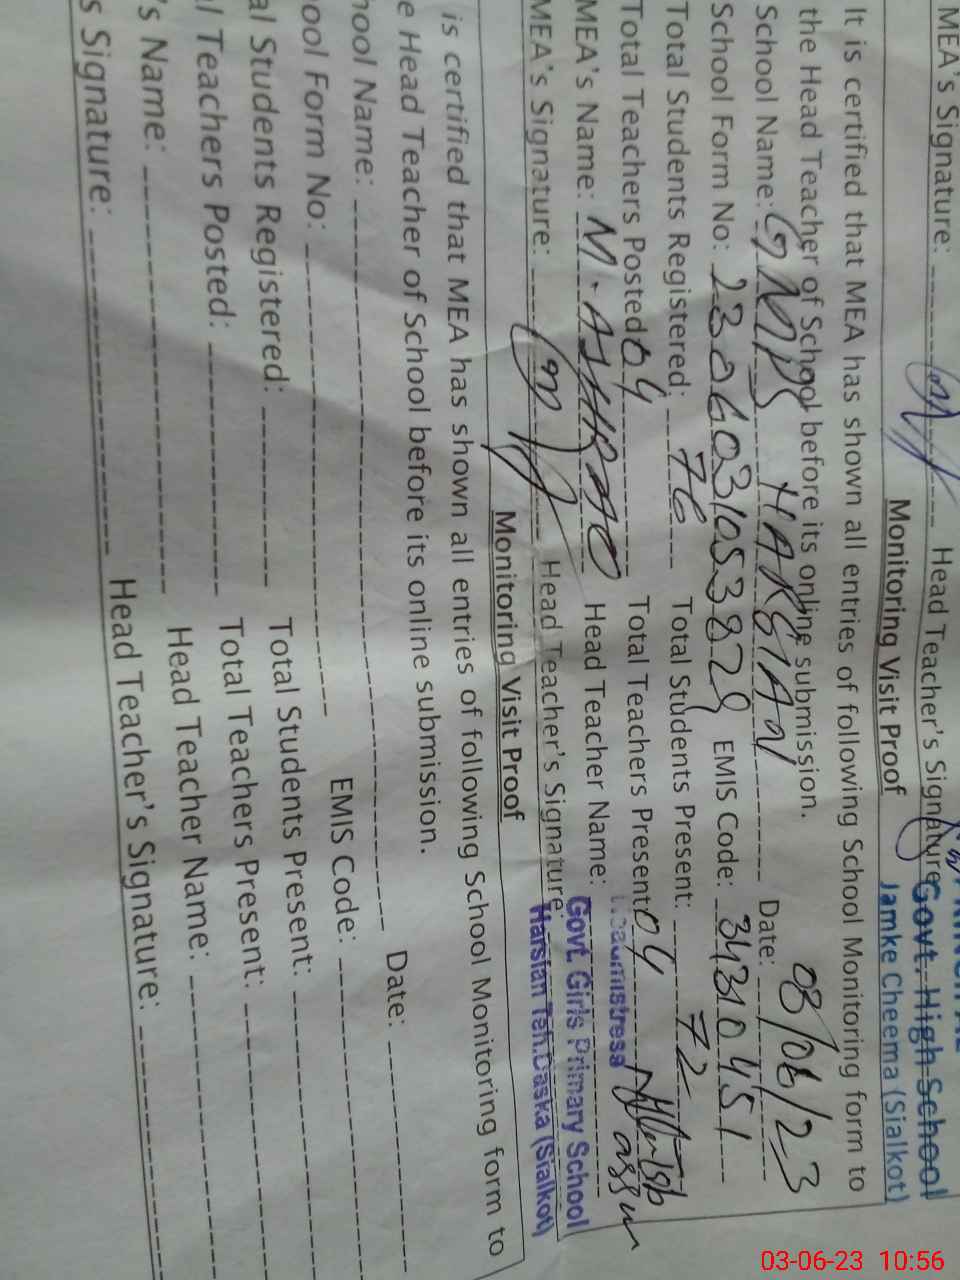 MEA's Signature: Head Teacher's Signature
Govt. High School
Jamke Cheema (Sialkot)
Monitoring Visit Proof
It is certified that MEA has shown all entries of following School Monitoring form to
the Head Teacher of School before its online submission.
School Name: GMPS HARSIAN Date: 03/06/23
School Form No: 2306031053828 EMIS Code: 34310451
Total Students Registered: 76 Total Students Present: 72
Total Teachers Posted 04 Total Teachers Present 04
MEA's Name: M. ASHRAF Head Teacher Name:
MEA's Signature: Head Teacher's Signature:
Headmistress
Govt. Girls Primary School
Harsian Teh. Daska (Sialkot)
Monitoring Visit Proof
is certified that MEA has shown all entries of following School Monitoring form to
e Head Teacher of School before its online submission.
hool Name: Date:
ool Form No: EMIS Code:
al Students Registered: Total Students Present:
al Teachers Posted: Total Teachers Present:
's Name: Head Teacher Name:
s Signature: Head Teacher's Signature:
03-06-23 10:56